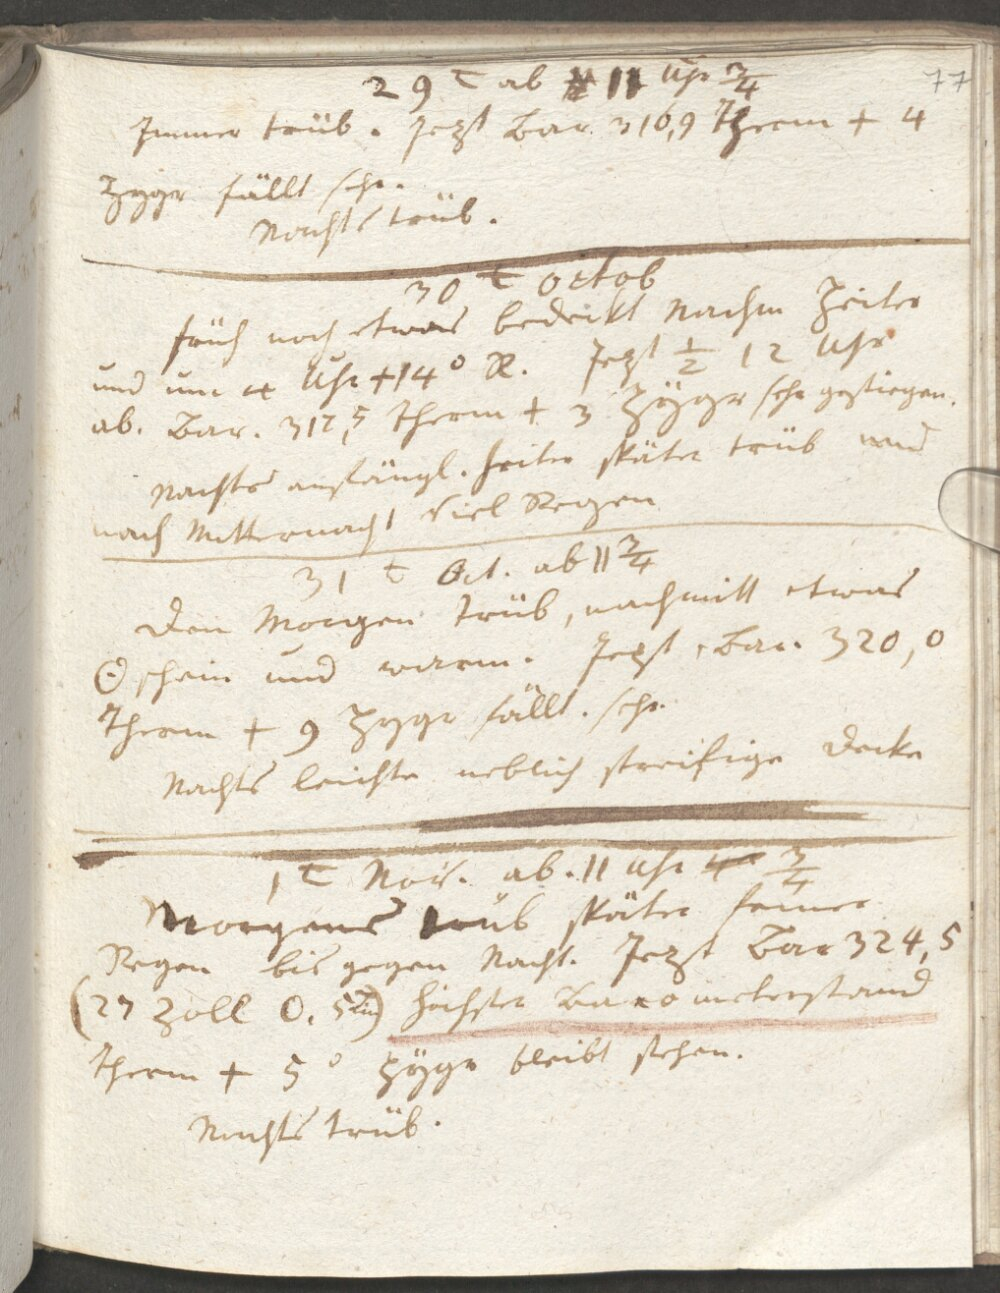 77
29 t ab 11 Uhr 3/4
Immer trüb. Jetzt Bar. 316,9 Therm + 4
Hygr fällt sehr.
Nachts trüb.
30 t Octob
früh noch etwas bedeckt Nachm heiter
und um 4 Uhr +14° R. Jetzt 1/2 12 Uhr
ab. Bar. 317,5 Therm + 3 Hÿgr sehr gestiegen.
Nachts anfängl. heiter später trüb und
nach Mitternacht viel Regen
31 t Oct. ab 11 3/4
Den Morgen trüb, nachmitt etwas
☉ schein und warm. Jetzt Bar. 320,0
Therm + 9 Hygr fällt. sehr.
Nachts leichte neblich streifige Decke
1 t Nov. ab. 11 Uhr 3/4
Morgens trüb später feiner
Regen bis gegen Nacht. Jetzt Bar 324,5
(27 Zoll 0,5 Lin) höchster Barometerstand
Therm + 5° Hÿgr bleibt stehen.
Nachts trüb.